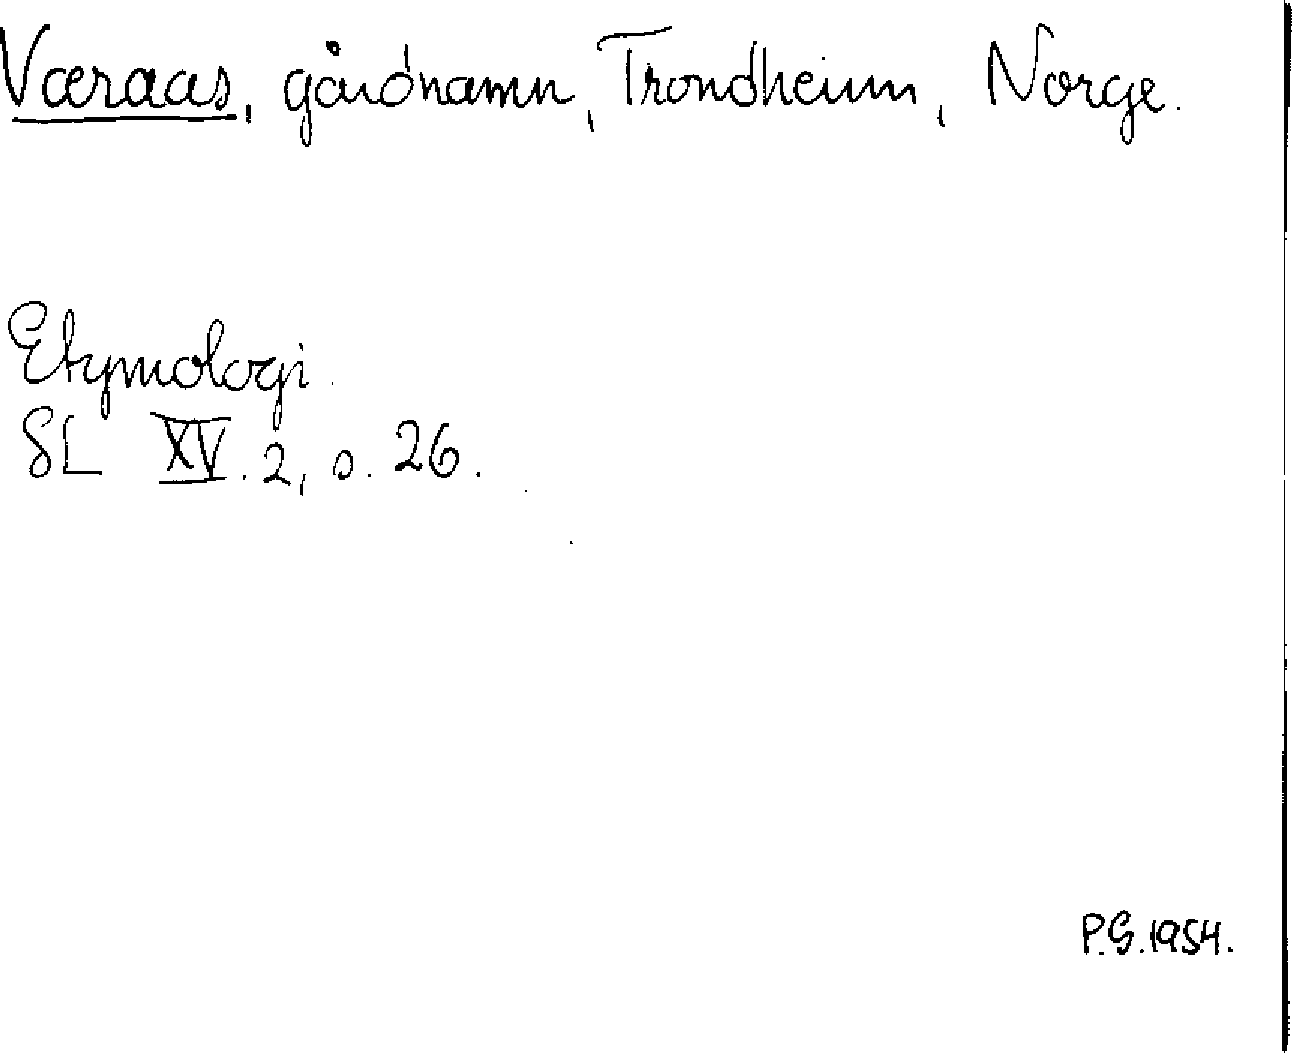 Væraas, gårdnamn, Trondheim, Norge.
Etymologi.
SL XV. 2, s. 26.
P.G. 1954.